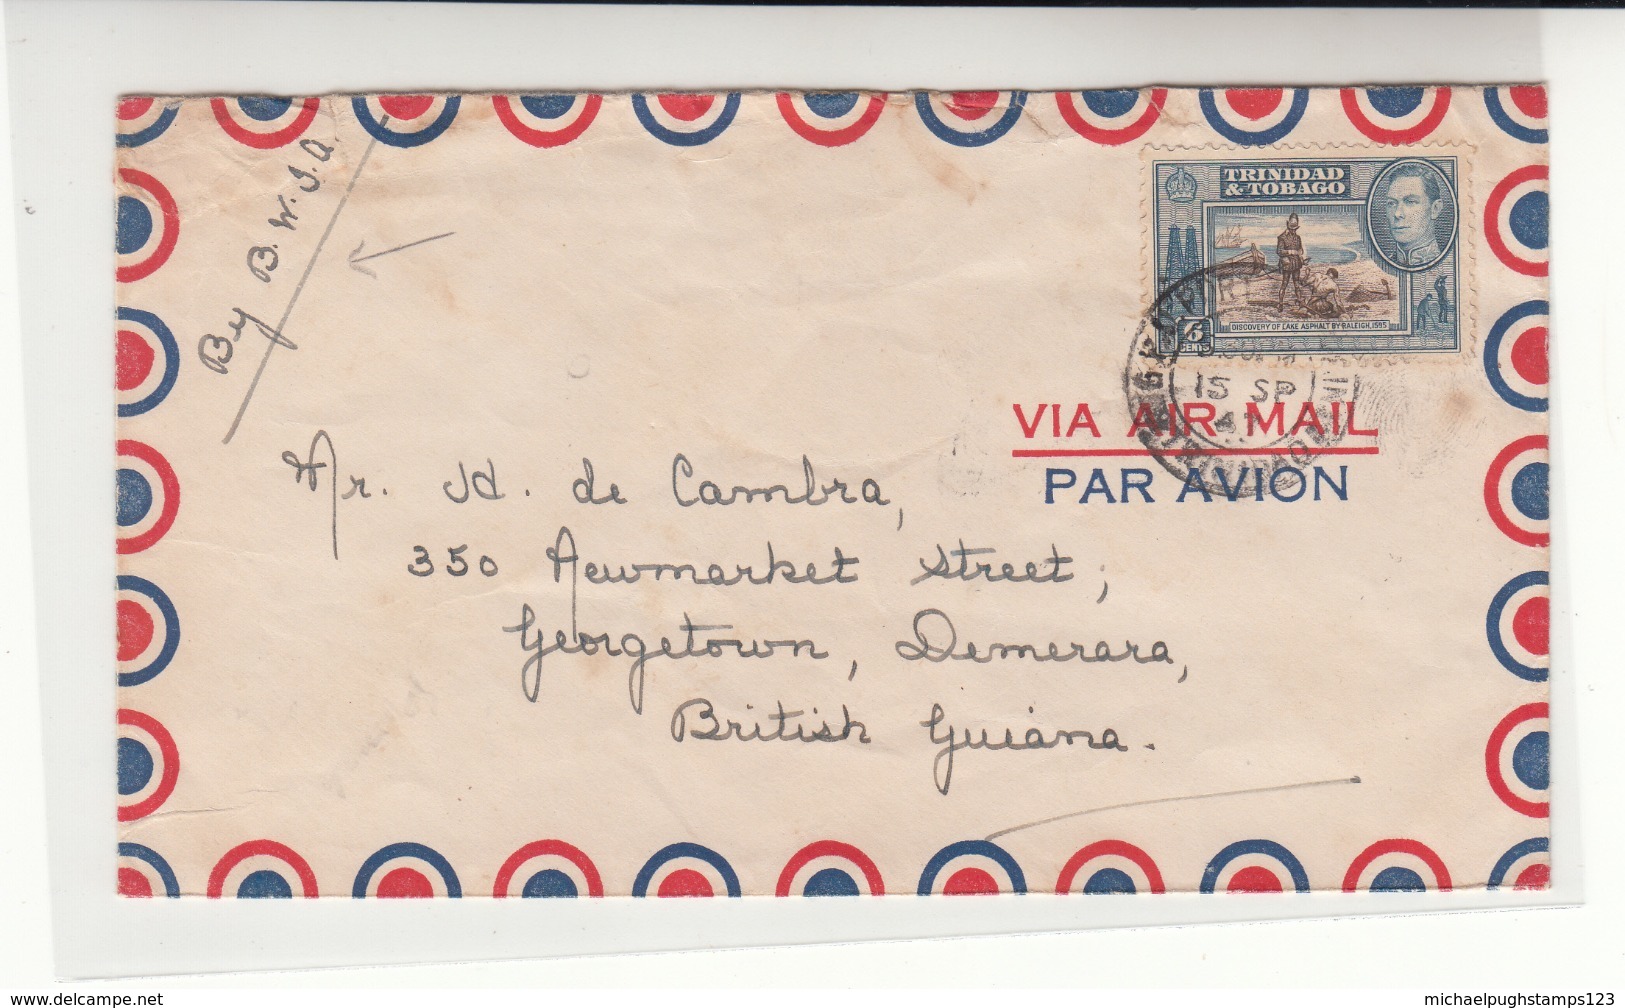 By B.W.I.A.
TRINIDAD
& TOBAGO
DISCOVERY OF LAKE ASPHALT BY RALEIGH, 1595
6
CENTS
15 SP
VIA AIR MAIL
PAR AVION
Mr. H. de Cambra,
350 Newmarket Street,
Georgetown, Demerara,
British Guiana.
www.delcampe.net
michaelpughstamps123